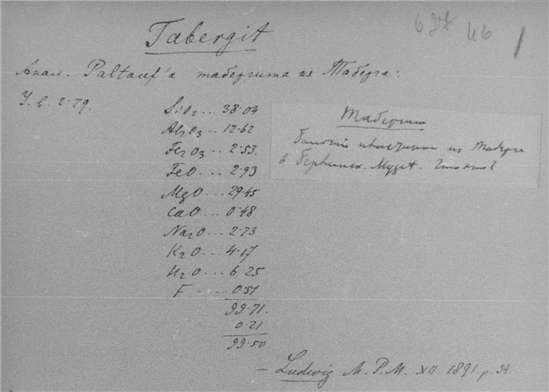 Tabergit
46
Анал. Paltauf'а табергита из Таберга:
2.79.
SiO2 ... 38.04
Al2O3 ... 12.62
Fe2O3 ... 2.53.
FeO ... 2.93
MgO ... 29.45
CaO ... 0.48
Na2O ... 2.73
K2O ... 4.17
H2O ... 6.25
F ... 0.51
99.71.
0.21
99.50
Табергит
из Таберга
в Музет.
– Ludwig M.P.M. XII. 1891 p. 34.